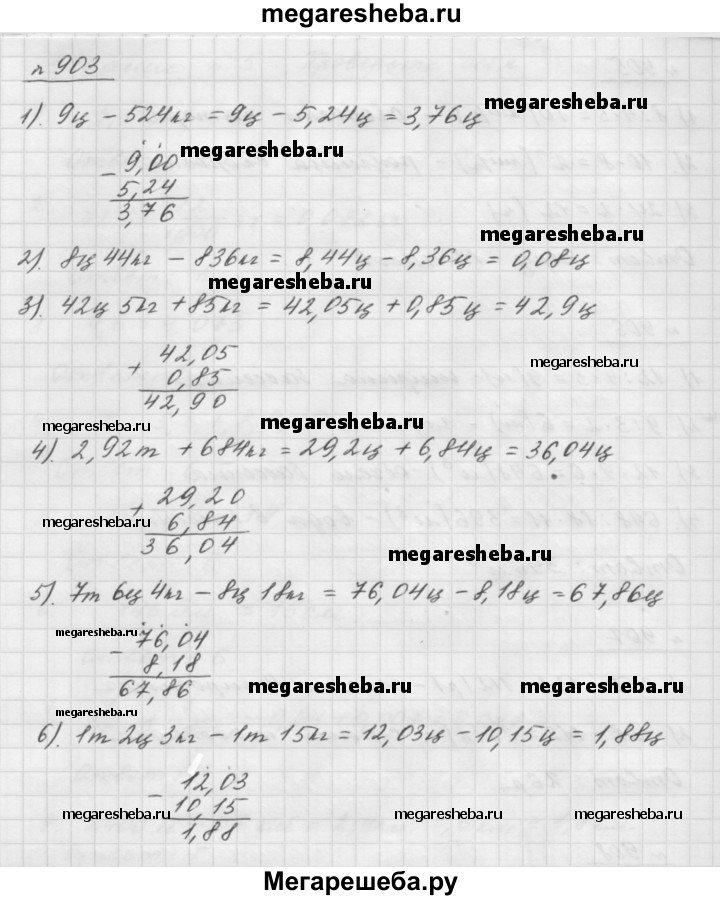 megaresheba.ru
n 903
1). 9ц - 524кг = 9ц - 5,24ц = 3,76ц
megaresheba.ru
megaresheba.ru
- 9,00
5,24
3,76
megaresheba.ru
2). 8ц 44кг - 836кг = 8,44ц - 8,36ц = 0,08ц
megaresheba.ru
3). 42ц 5кг + 85кг = 42,05ц + 0,85ц = 42,9ц
+ 42,05
0,85
42,90
megaresheba.ru
megaresheba.ru
megaresheba.ru
4). 2,92т + 684кг = 29,2ц + 6,84ц = 36,04ц
+ 29,20
6,84
36,04
megaresheba.ru
megaresheba.ru
5). 7т 6ц 4кг - 8ц 18кг = 76,04ц - 8,18ц = 67,86ц
megaresheba.ru
- 76,04
8,18
67,86
megaresheba.ru
megaresheba.ru
6). 1т 2ц 3кг - 1т 15кг = 12,03ц - 10,15ц = 1,88ц
- 12,03
10,15
1,88
megaresheba.ru
megaresheba.ru
megaresheba.ru
Мегарешеба.ру